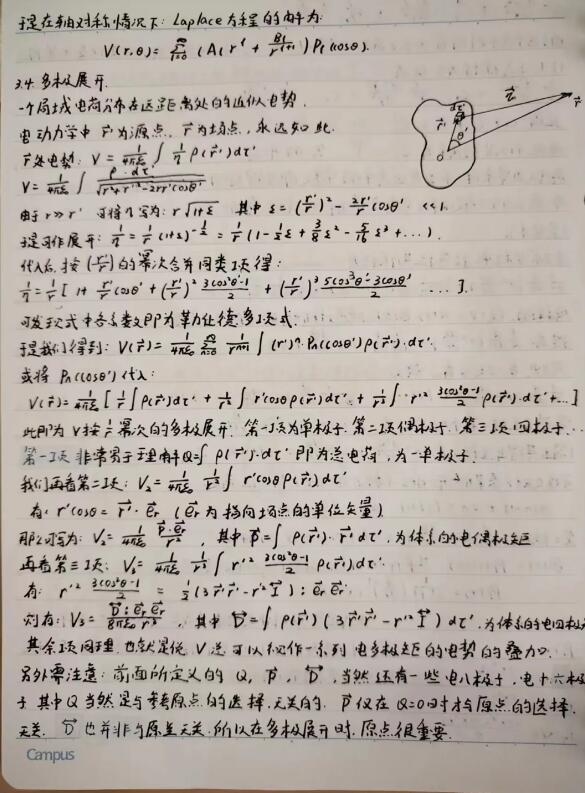 于是在轴对称情况下: Laplace方程的解为:
V(r,θ) = ∑_{l=0}^{∞} (A_l r^l + B_l/r^{l+1}) P_l(cosθ).
3.4. 多极展开.
一个局域电荷分布在远距离处的近似电势.
电动力学中 r⃗'为源点, r⃗为场点, 永远如此.
r⃗处电势: V = 1/(4πε₀) ∫ 1/r ρ(r⃗')dτ'
V = 1/(4πε₀) ∫ ρ·dτ'/√(r²+r'²-2rr'cosθ')
由于 r≫r' 可将r写为: r√(1+ε) 其中 ε = (r'/r)² - 2r'/r cosθ' ≪1.
于是可作展开: 1/r = 1/r (1+ε)^{-1/2} = 1/r (1 - 1/2 ε + 3/8 ε² - 5/16 ε³ + ...).
代入后, 按 (r'/r) 的幂次合并同类项得:
1/r = 1/r [1 + r'/r cosθ' + (r'/r)² (3cos²θ'-1)/2 + (r'/r)³ (5cos³θ'-3cosθ')/2 ....].
可发现式中各系数即为勒让德多项式.
于是我们得到: V(r⃗) = 1/(4πε₀) ∑_{n=0}^{∞} 1/r^{n+1} ∫ (r')ⁿ·Pₙ(cosθ')ρ(r⃗')·dτ'
或将 Pₙ(cosθ') 代入:
V(r⃗) = 1/(4πε₀) [1/r ∫ρ(r⃗')dτ' + 1/r² ∫ r'cosθρ(r⃗')dτ' + 1/r³ ∫ r'² (3cos²θ-1)/2 ρ(r⃗')·dτ' + ...]
此即为 V 按 1/r 幂次的多极展开. 第一项为单极子. 第二项偶极子. 第三项四极子...
第一项非常易于理解 Q=∫ρ(r⃗')·dτ' 即为总电荷, 为一单极子.
我们再看第二项: V₂ = 1/(4πε₀) 1/r² ∫ r'cosθρ(r⃗')dτ'
有: r'cosθ = r⃗'·e⃗r (e⃗r 为指向场点的单位矢量)
那么可写为: V₂ = 1/(4πε₀) p⃗·e⃗r/r², 其中 p⃗=∫ρ(r⃗')·r⃗'dτ', 为体系的电偶极矩
再看第三项: V₃ = 1/(4πε₀) 1/r³ ∫ r'² (3cos²θ-1)/2 ρ(r⃗')dτ'
有: r'² (3cos²θ-1)/2 = 1/2 (3r⃗'r⃗' - r'²I⃗) : e⃗r e⃗r
则有: V₃ = D⃗ : e⃗r e⃗r/(8πε₀ r³), 其中 D⃗ = ∫ρ(r⃗')(3r⃗'r⃗' - r'²I⃗)dτ'. 为体系的电四极
其余项同理. 也就是说 V 总可以视作一系列电多极矩的电势的叠加.
另外需注意: 前面所定义的 Q, p⃗, D⃗, 当然还有一些电八极子, 电十六极
子 其中Q当然是与参考原点的选择无关的. p⃗仅在Q=0时才与原点的选择
无关. D⃗也并非与原点无关. 所以在多极展开时, 原点很重要.
dτ'
r
r⃗
r⃗'
θ'
O
Campus